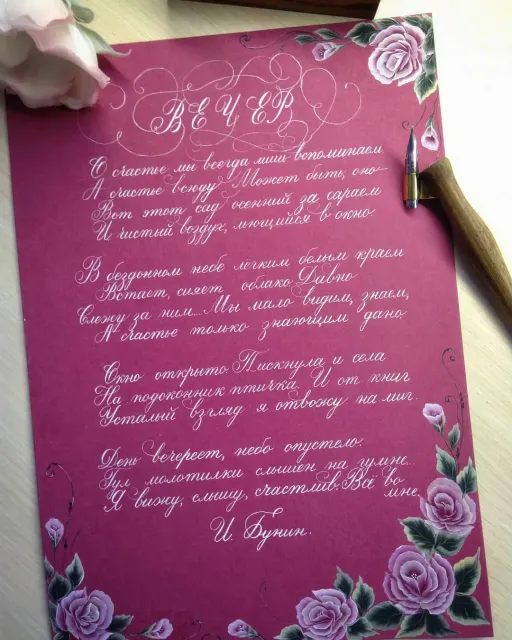 ВЕЧЕР
О счастье мы всегда лишь вспоминаем
А счастье всюду. Может быть, оно
Вот этот сад осенний за сараем
И чистый воздух, льющийся в окно.
В бездонном небе лёгким белым краем
Встает, сияет облако. Давно
Слежу за ним... Мы мало видим, знаем,
А счастье только знающим дано.
Окно открыто. Пискнула и села
На подоконник птичка. И от книг
Усталый взгляд я отвожу на миг.
День вечереет, небо опустело.
Гул молотилки слышен на гумне...
Я вижу, слышу, счастлив. Всё во мне.
И. Бунин.